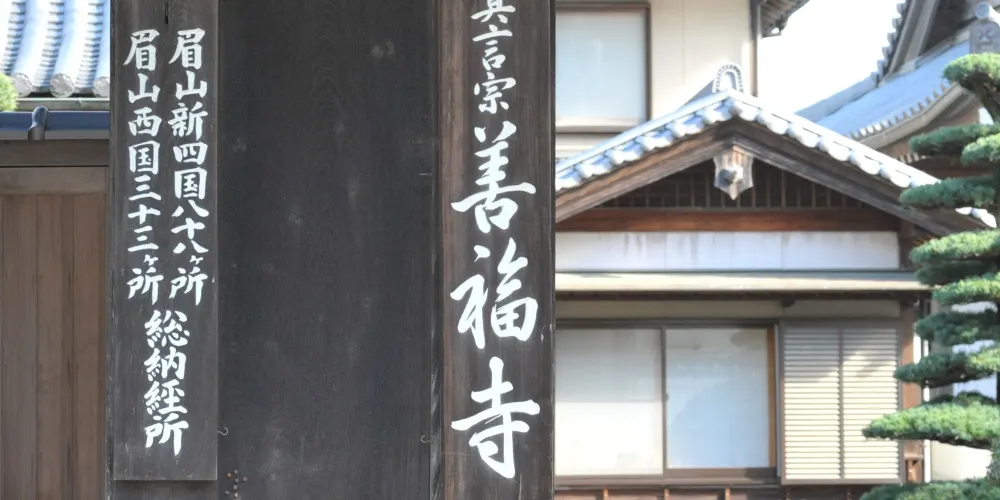 真言宗善福寺
眉山新四国八十八ヶ所
眉山西国三十三ヶ所
総納経所